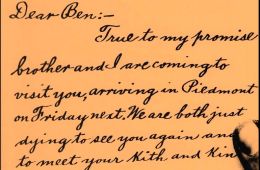 Dear Ben:-
True to my promise
brother and I are coming to
visit you, arriving in Piedmont
on Friday next. We are both just
dying to see you again and
to meet your Kith and Kin